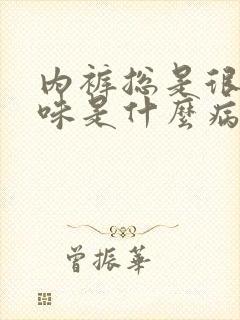 内裤总是很
味是什麼病
曾振華